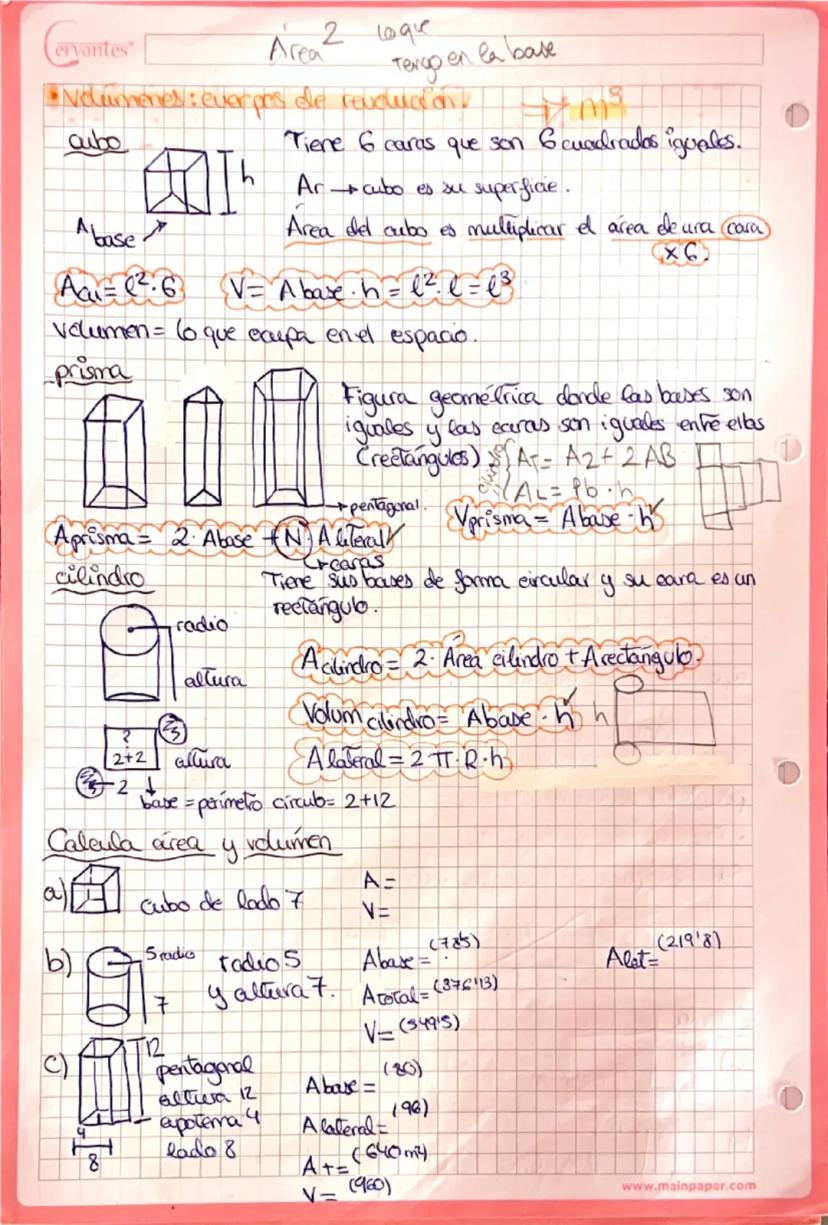 Cervantes®
Área² lo que
tengo en la base
• Volúmenes: cuerpos de revolución! → m³
cubo
h
A base
Tiene 6 caras que son 6 cuadrados iguales.
Ar → cubo es su superficie.
Área del cubo es multiplicar el área de una cara
x 6.
Acu = l²·6 V = A base · h = l² · l = l³
volumen = lo que ocupa en el espacio.
prisma
Figura geométrica donde las bases son
iguales y las caras son iguales entre ellas
(rectángulos)
AT = A2 + 2 AB
AL = Pb · h
→ pentagonal.
Aprisma = 2· Abase + (N) A lateral ✓
↳ caras
Vprisma = Abase · h ✓
cilindro
Tiene sus bases de forma circular y su cara es un
rectángulo.
radio
altura
Acilindro = 2· Área cilindro + Arectángulo.
Volum cilindro = Abase · h ✓
h
?
2+2
altura
A lateral = 2 π · R · h
2
base = perímetro círculo = 2+12
Calcula área y volúmen
a) cubo de lado 7
A =
V =
b) 5 radio
7
radio 5
y altura 7.
Abase = (78'5)
Atotal = (376'13)
V = (549'5)
Alat = (219'8)
c) 12
pentagonal
altura 12
apotema 4
lado 8
4
8
Abase = (80)
A lateral = (96)
A t = (640 m²)
V = (960)
www.mainpaper.com